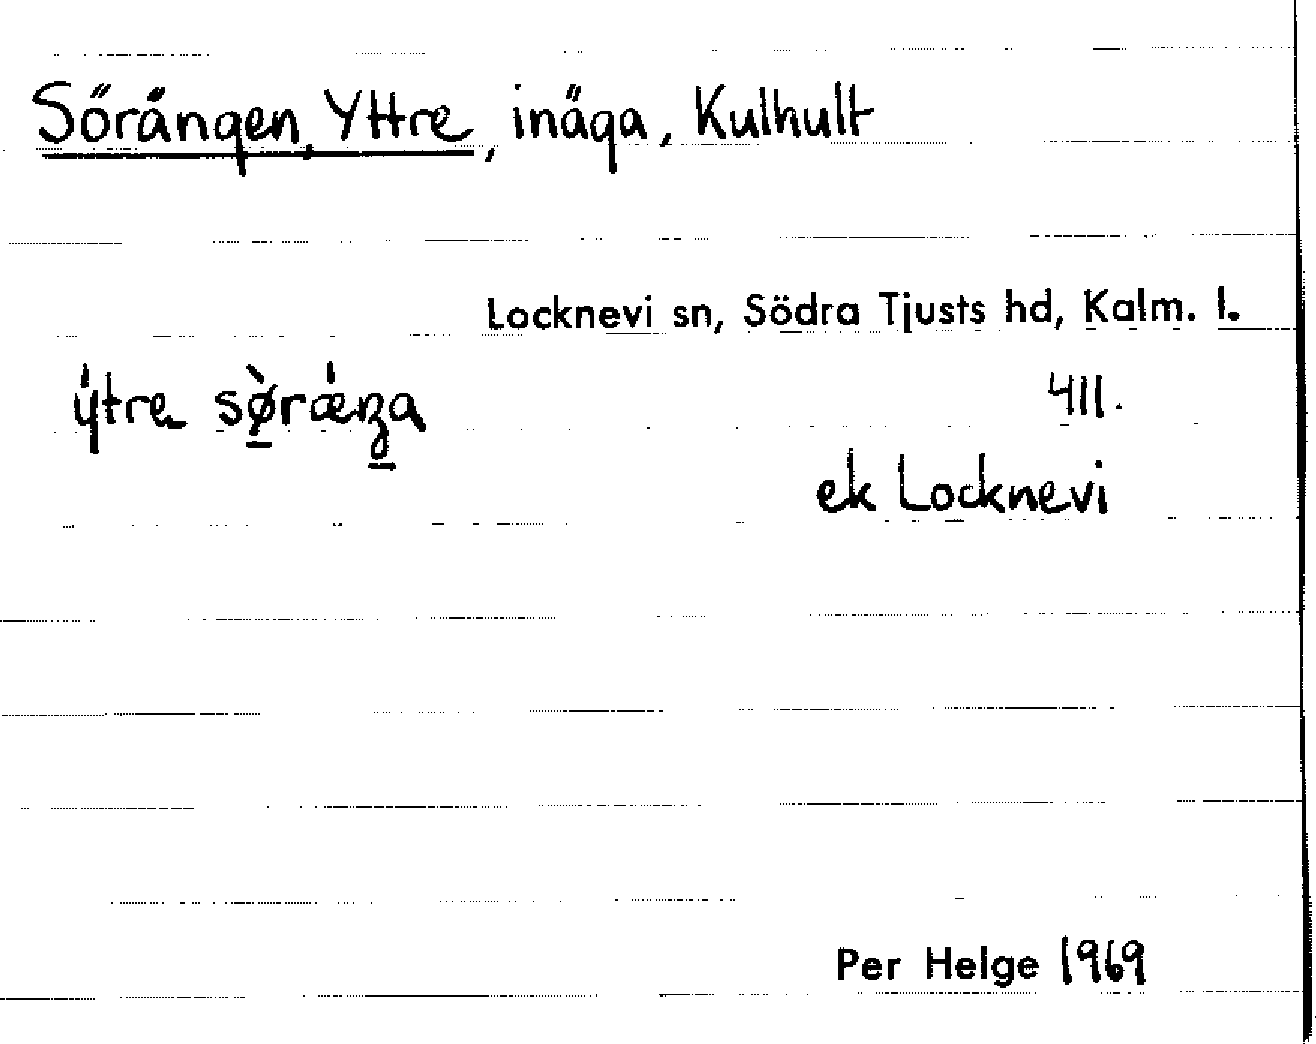 Sörängen, Yttre, inäga, Kulhult
Locknevi sn, Södra Tjusts hd, Kalm. l.
ýtre sø̠̀rǽŋ̠a
411.
ek Locknevi
Per Helge 1969